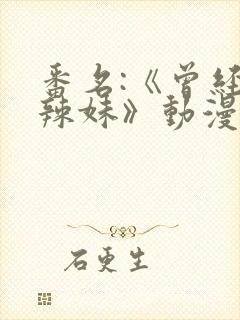 番名:《曾经
辣妹》動漫
石更生